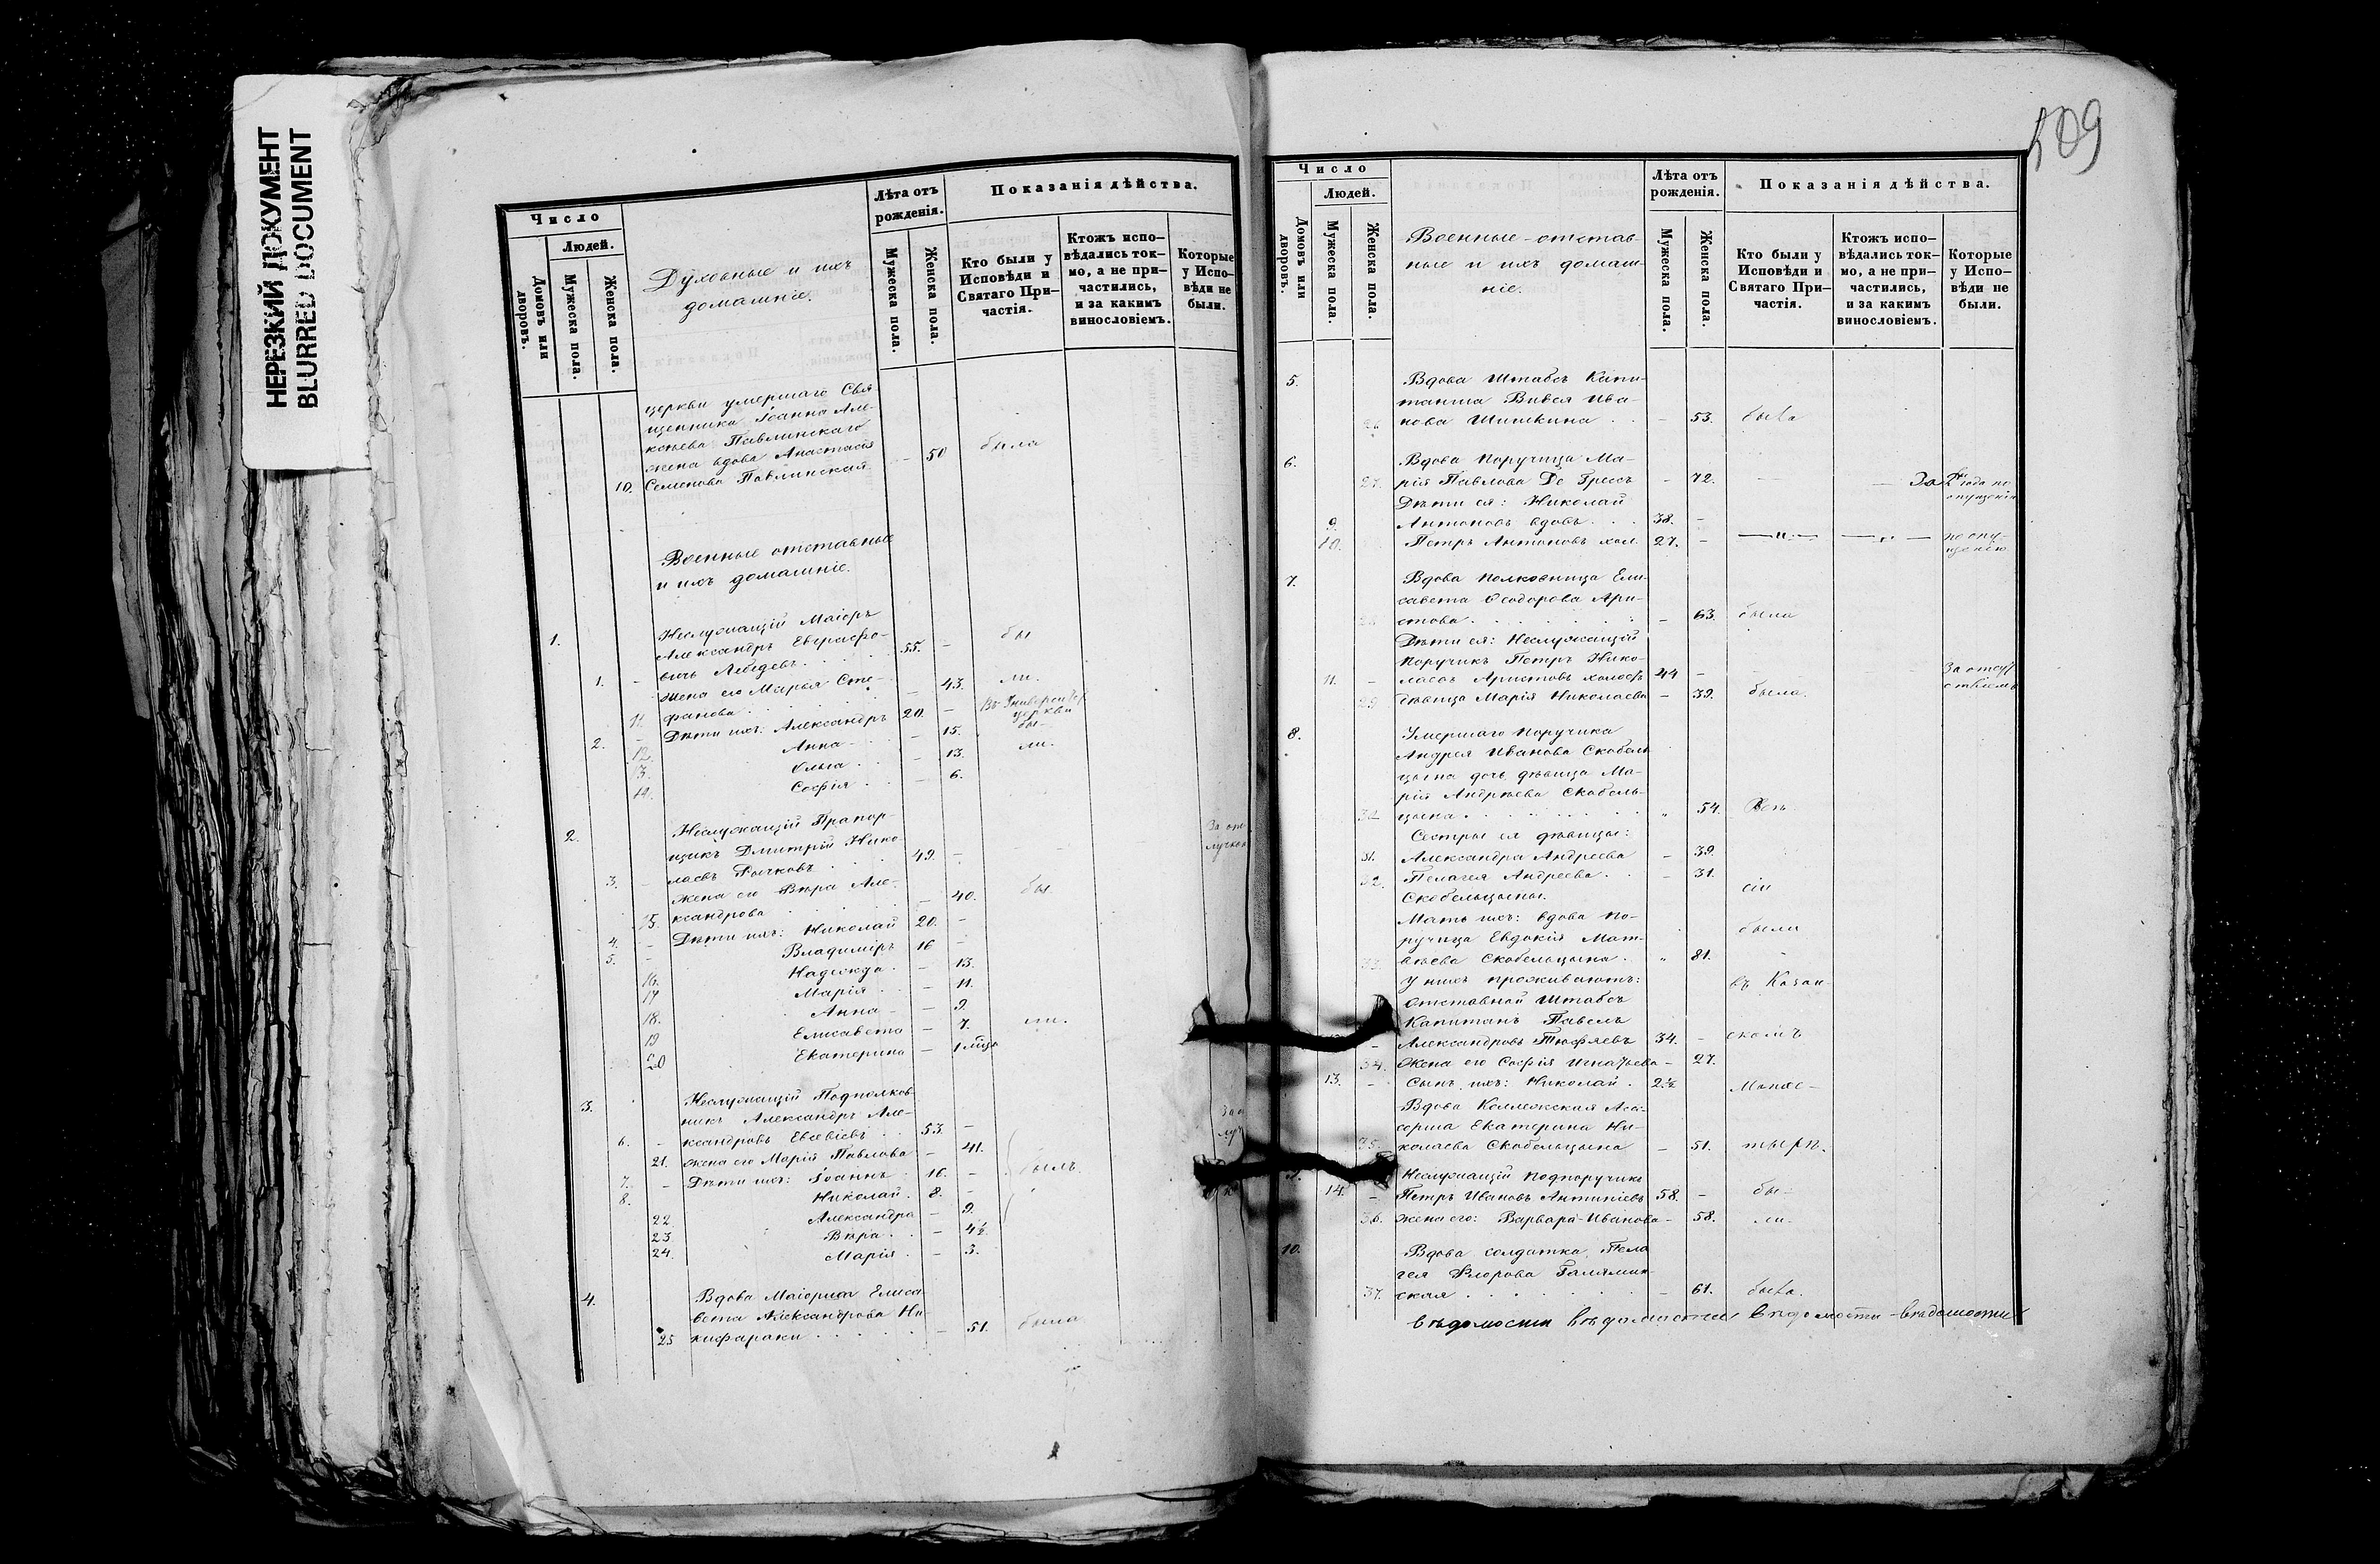 НЕРЕЗКИЙ ДОКУМЕНТ
BLURRED DOCUMENT
Число
Людей.
Домовъ или дворовъ.
Мужеска пола.
Женска пола.
Духовные и ихъ
домашніе.
Лѣта отъ
рожденія.
Мужеска пола.
Женска пола.
Показанія дѣйства.
Кто были у
Исповѣди и
Святаго При-
частія.
Ктожъ испо-
вѣдались ток-
мо, а не при-
частились,
и за какимъ
винословіемъ.
Которые
у Испо-
вѣди не
были.
церкви умершаго Свя
щенника Іоанна Але-
ксѣева Павлинскаго
жена вдова Анастасія
10. Семенова Павлинская - 50 была
Военные отставные
и ихъ домашніе.
1. Неслужащій Маіоръ
Александръ Евграфо-
1. - вичъ Лебедевъ 55. - бы
жена его Марья Сте-
11. фанова - 43. ли.
2. - Дѣти ихъ: Александръ 20. - Въ Университ церкви
12. Анна - 15. бы-
13. Ольга - 13. ли.
14. Софія - 6.
2. Неслужащій Прапор-
щикъ Дмитрій Нико-
3. - лаевъ Рычковъ 49. - За от-
лучкою
жена его Вѣра Але-
15. ксандрова - 40. бы
4. - Дѣти ихъ: Николай 20. -
5. - Владиміръ 16 -
16. Надежда - 13.
17 Марія - 11.
18. Анна - 9.
19 Елисавета - 7. ли.
20 Екатерина - 1 мѣц
3. Неслужащій Подполков-
никъ Александръ Але-
6. - ксандровъ Евсевіевъ 53. - За от
луч
21. жена его Марія Павлова - 41.
7. - Дѣти ихъ: Іоаннъ 16. - былъ.
8. Николай 8. -
22. Александра - 9.
23. Вѣра - 4½
24. Марія - 3.
4. Вдова Маіорша Елиса
вета Александрова Ни
25 кифараки - 51. была
509
Число
Людей.
Домовъ или дворовъ.
Мужеска пола.
Женска пола.
Военные-отстав-
ные и ихъ домаш-
ніе.
Лѣта отъ
рожденія.
Мужеска пола.
Женска пола.
Показанія дѣйства.
Кто были у
Исповѣди и
Святаго При-
частія.
Ктожъ испо-
вѣдались ток-
мо, а не при-
частились,
и за какимъ
винословіемъ.
Которые
у Испо-
вѣди не
были.
5. Вдова Штабсъ Капи-
танша Ива-
26 нова Шишкина - 53. была
6. Вдова Поручица Ма-
27. рія Павлова Де - 72. - За 2 года по
опущенію
Дѣти ея: Николай
9. Антоновъ вдовъ 38. -
10. Петръ Антоновъ хол. 27. - по опу-
щенію
7. Вдова Полковница Ели-
савета Ѳеодорова Ари-
28 стова - 63. была
Дѣти ея: Неслужащій
Поручикъ Петръ Нико-
11. - лаевъ Аристовъ холостъ 44 - За отсут
ствіемъ
29 дѣвица Марія Николаева - 39. была.
8. Умершаго Поручика
Андрея Иванова Скобель
цына дочь дѣвица Ма-
рія Андрѣева Скобель-
30. цына „ 54. Всѣ
Сестры ея дѣвицы:
31. Александра Андреева - 39.
32. Пелагея Андреева - 31.
Скобельцыны. сіи
Мать ихъ: вдова По-
ручица Евдокія Мат- были
33. вѣева Скобельцына „ 81.
у нихъ проживаютъ: въ Казан-
отставной Штабсъ
Капитанъ Павелъ
- Александровъ Тюфяевъ 34. - скомъ
34. Жена его Софія Игнатьева - 27.
13. - Сынъ ихъ: Николай 2½ Монас-
Вдова Коллежская Ассе-
сорша Екатерина Ни-
35. колаева Скобельцына - 51. тырѣ.
9. Неслужащій Подпоручикъ
14. - Петръ Ивановъ Антипіевъ 58. - бы-
36. жена его: Варвара Иванова - 58. ли
10. Вдова солдатка Пела
гея Флорова
37. ская - 61. была.
вѣдомости вѣдомости вѣдомости вѣдомости